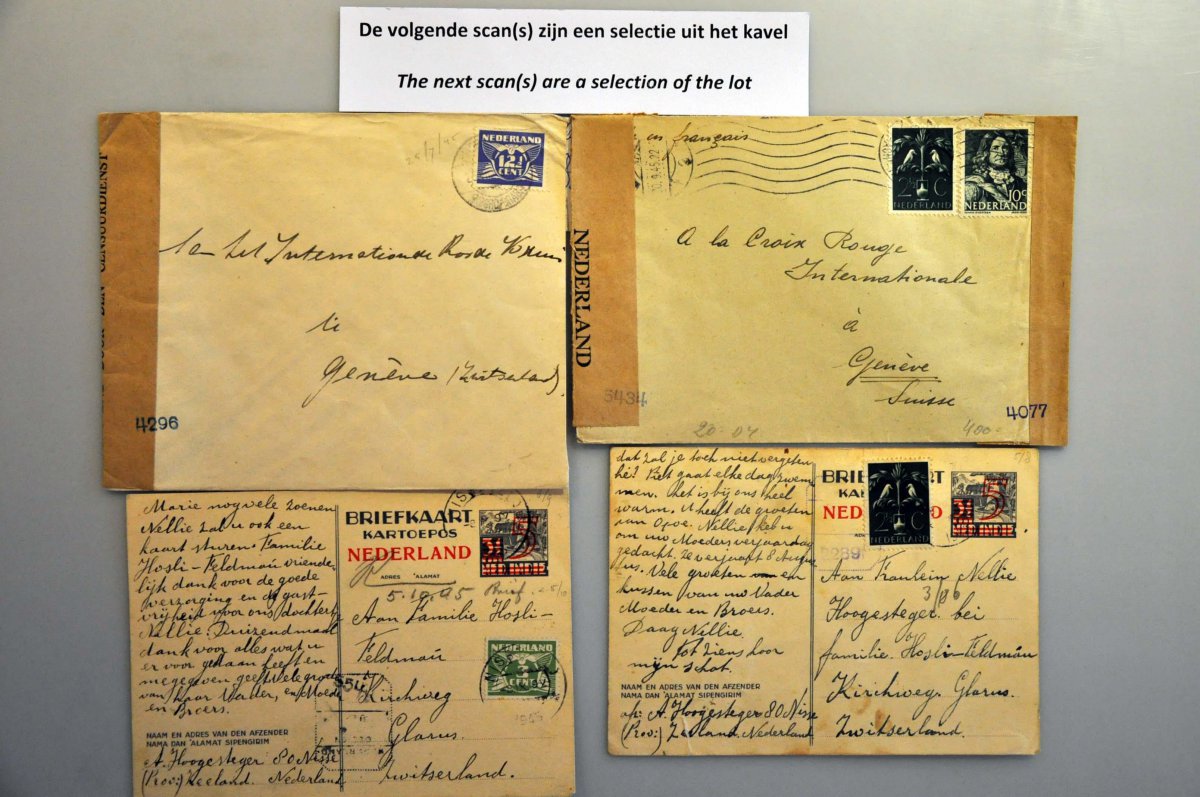 De volgende scan(s) zijn een selectie uit het kavel
The next scan(s) are a selection of the lot
25/7/45
NEDERLAND
12½
CENT
Internationale Roode Kruis
te
Genève (Zwitserland)
DOOR DEN CENSUURDIENST
4296
en français
30.9.45.22
2½ C
NEDERLAND
10 c
NEDERLAND
A la Croix Rouge
Internationale
à
Genève
Suisse
NEDERLAND
3434
4077
20-04
400-
Marie nog vele zoenen
Nellie zal u ook een
kaart sturen. Familie
Hosli-Feldman vriende-
lijk dank voor de goede
verzorging en de gast-
vrijheid voor ons dochtertje
Nellie. Duizendmaal
dank voor alles wat u
er voor gedaan heeft en
meegegeven geeft vele groeten
van haar Vader, en Moeder
en Broers.
NAAM EN ADRES VAN DEN AFZENDER
NAMA DAN 'ALAMAT SIPENGIRIM
A. Hoogesteger 80 Nisse
(Prov:) Zeeland. Nederland
BRIEFKAART
KARTOEPOS
NEDERLAND
ADRES 'ALAMAT
5
NED. INDIE
5.10.45
Brief 25/10
Aan Familie Hosli-
Feldmaür
NEDERLAND
CENT
Kirchweg
Glarus.
Zwitserland.
1945
dat zal je toch niet vergeten
hè? Piet gaat elke dag zwem
men. het is bij ons heel
warm. U heeft de groeten
van Opoe. Nellie heb u
om uw Moeders verjaardag
gedacht. ze verjaart 8 Augus
tus. Vele groeten en
kussen van uw Vader
Moeder en Broers.
Daag Nellie.
tot ziens hoor
mijn schat.
NAAM EN ADRES VAN DEN AFZENDER
NAMA DAN 'ALAMAT SIPENGIRIM
A. Hoogesteger 80 Nisse
(Prov:) Zeeland. Nederland
BRIEFKAART
2½ C
NEDERLAND
5
5/8
3/86
Aan Fraulein Nellie
Hoogesteger bei
familie. Hosli-Feldmáür
Kirchweg. Glarus.
Zwitserland.